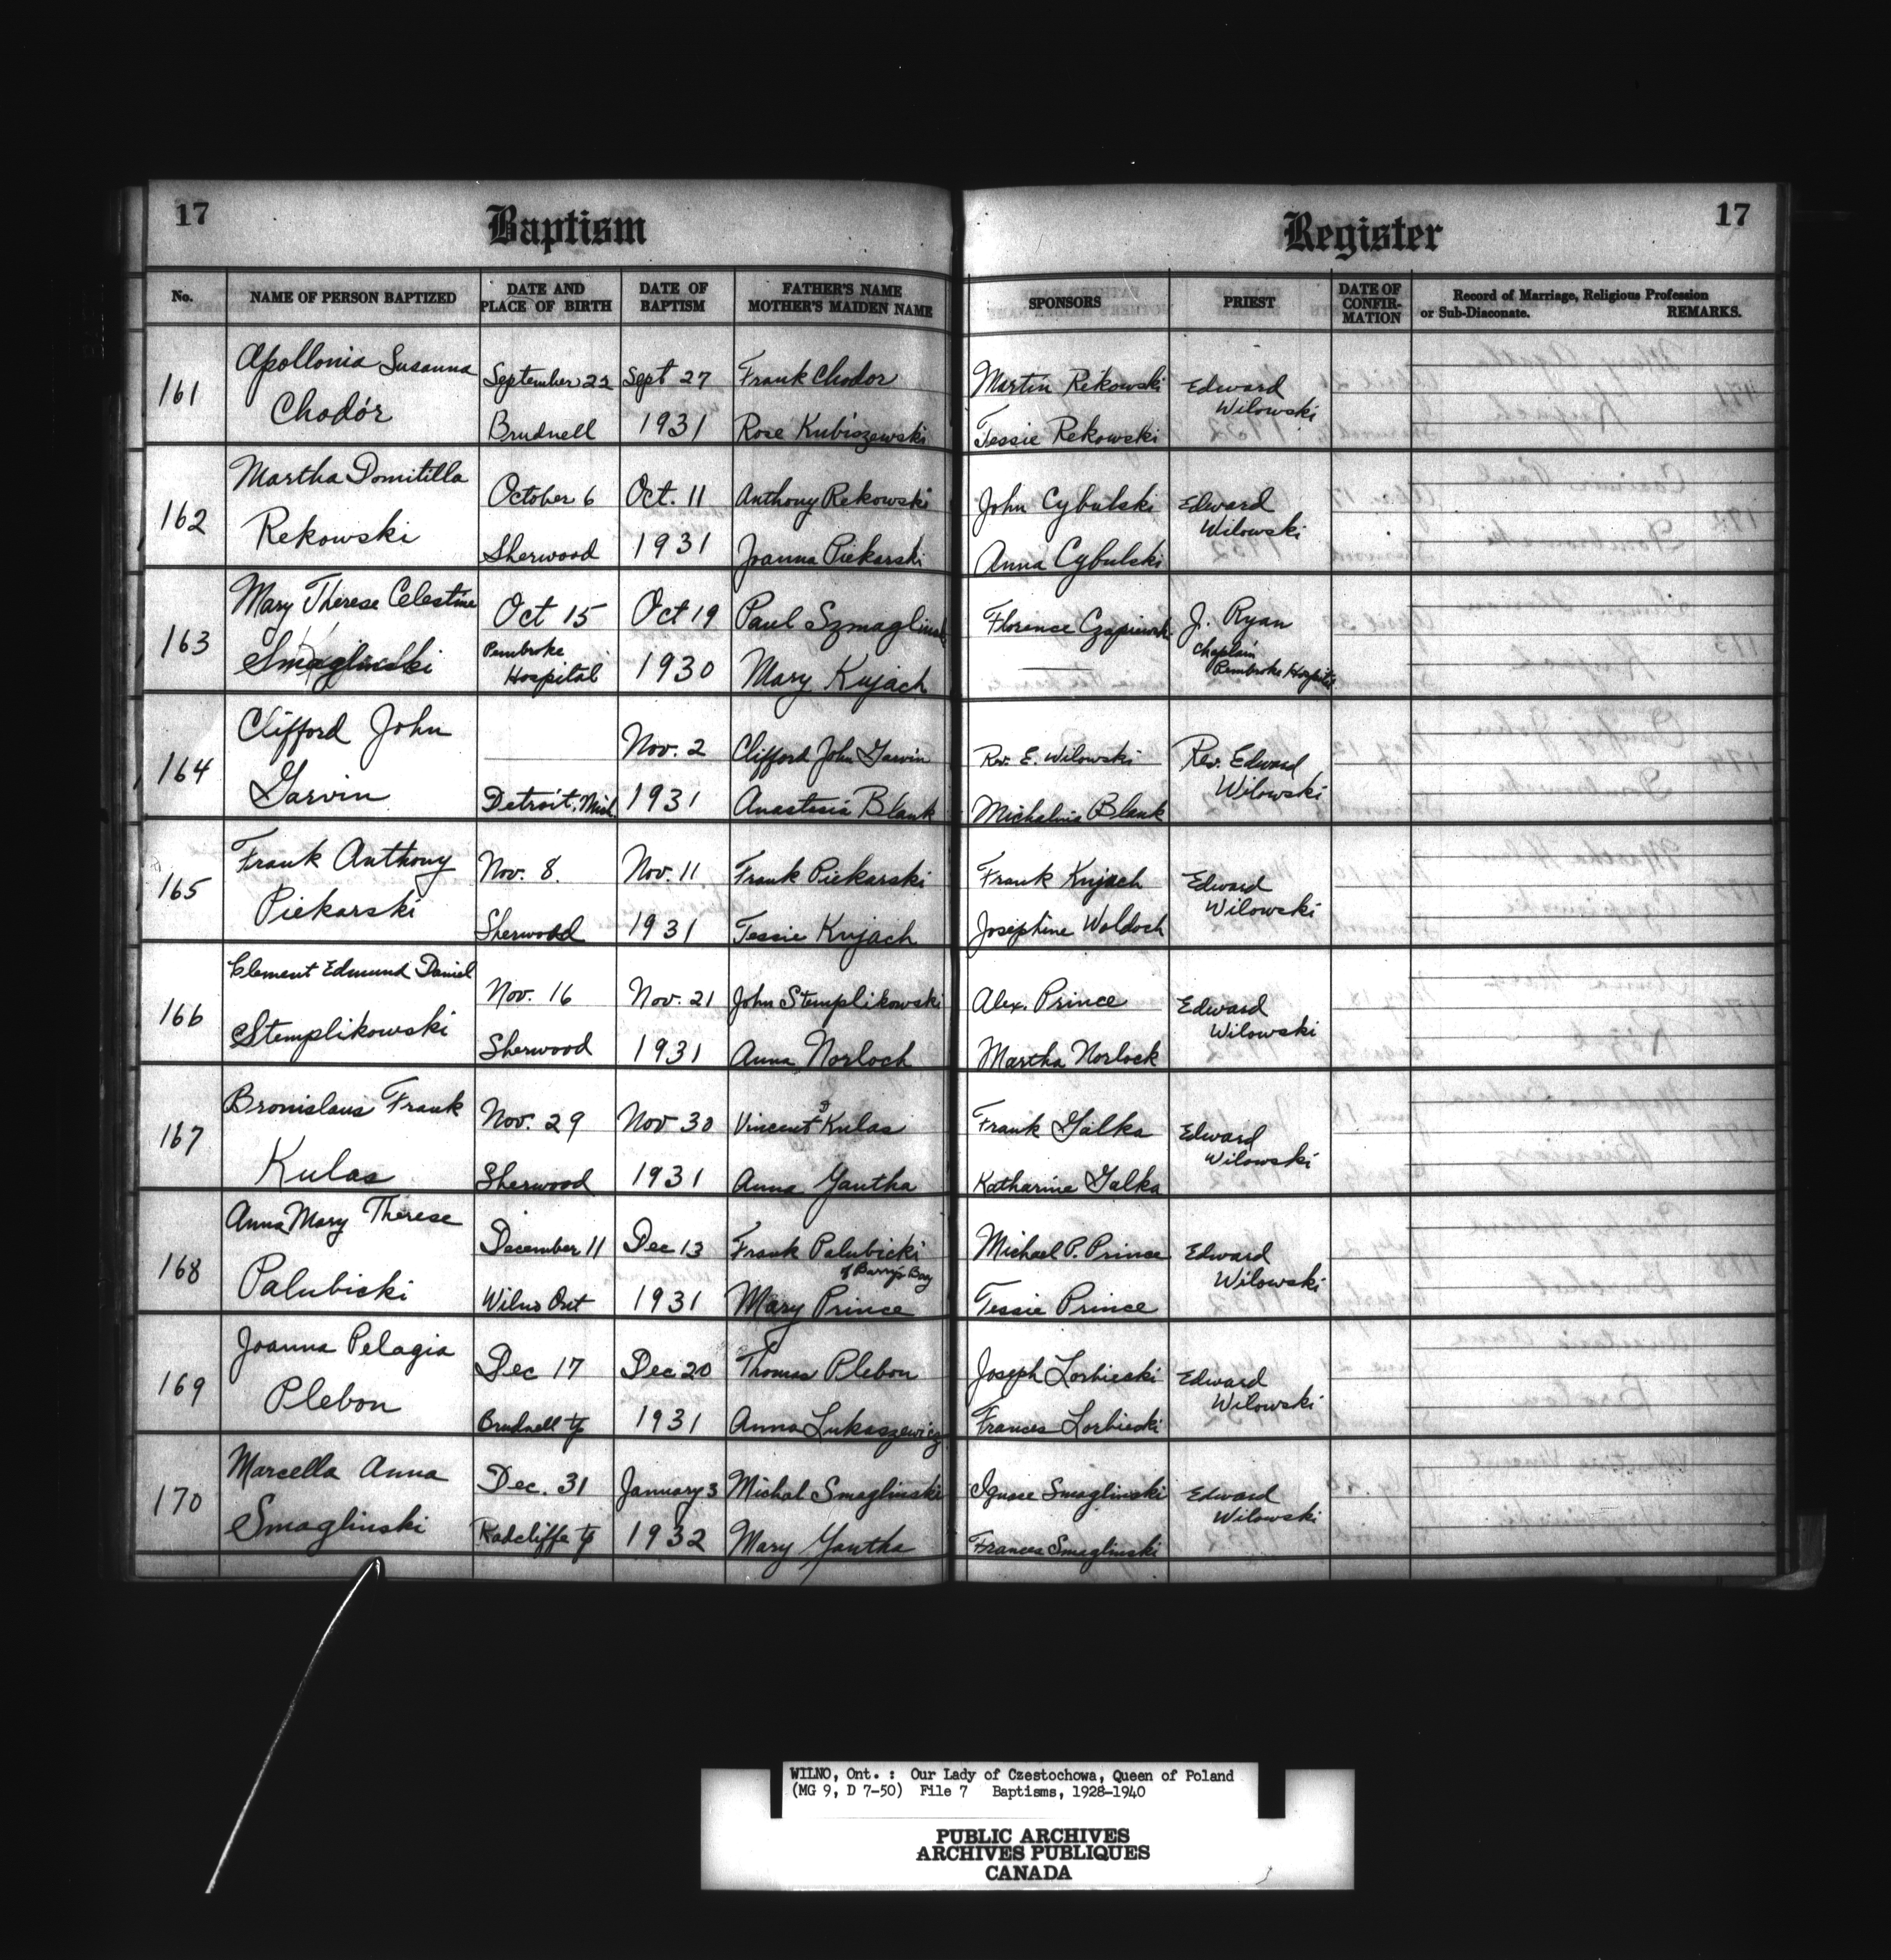 17 Baptism
Register 17
No. NAME OF PERSON BAPTIZED DATE AND PLACE OF BIRTH DATE OF BAPTISM FATHER'S NAME MOTHER'S MAIDEN NAME SPONSORS PRIEST DATE OF CONFIRMATION Record of Marriage, Religious Profession or Sub-Diaconate. REMARKS.
161
Apollonia Susanna
Chodór
September 22
Brudnell
Sept 27
1931
Frank Chodor
Rose Kubiszewski
Martin Rekowski
Tessie Rekowski
Edward
Wilowski
162
Martha Domitilla
Rekowski
October 6
Sherwood
Oct. 11
1931
Anthony Rekowski
Joanna Piekarski
John Cybulski
Anna Cybulski
Edward
Wilowski
163
Mary Therese Celestine
Smaglinski
Oct 15
Pembroke
Hospital
Oct 19
1930
Paul Szmaglinski
Mary Kujach
Florence Czapiewski
J. Ryan
Chaplain
Pembroke Hospital
164
Clifford John
Garvin
Detroit, Mich.
Nov. 2
1931
Clifford John Garvin
Anastasia Blank
Rev. E. Wilowski
Michalina Blank
Rev. Edward
Wilowski
165
Frank Anthony
Piekarski
Nov. 8.
Sherwood
Nov. 11
1931
Frank Piekarski
Tessie Kujach
Frank Kujach
Josephine Woldoch
Edward
Wilowski
166
Clement Edmund Daniel
Stemplikowski
Nov. 16
Sherwood
Nov. 21
1931
John Stemplikowski
Anna Norloch
Alex. Prince
Martha Norlock
Edward
Wilowski
167
Bronislaus Frank
Kulas
Nov. 29
Sherwood
Nov 30
1931
Vincent Kulas
Anna Yantha
Frank Galka
Katharine Galka
Edward
Wilowski
168
Anna Mary Therese
Palubicki
December 11
Wilno Ont
Dec 13
1931
Frank Palubicki
of Barry's Bay
Mary Prince
Michael P. Prince
Tessie Prince
Edward
Wilowski
169
Joanna Pelagia
Plebon
Dec 17
Brudnell tp
Dec 20
1931
Thomas Plebon
Anna Lukaszewicz
Joseph Lorbiecki
Frances Lorbiecki
Edward
Wilowski
170
Marcella Anna
Smaglinski
Dec. 31
Radcliffe tp
January 3
1932
Michal Smaglinski
Mary Yantha
Ignace Smaglinski
Frances Smaglinski
Edward
Wilowski
WILNO, Ont. : Our Lady of Czestochowa, Queen of Poland
(MG 9, D 7-50) File 7 Baptisms, 1928-1940
PUBLIC ARCHIVES
ARCHIVES PUBLIQUES
CANADA